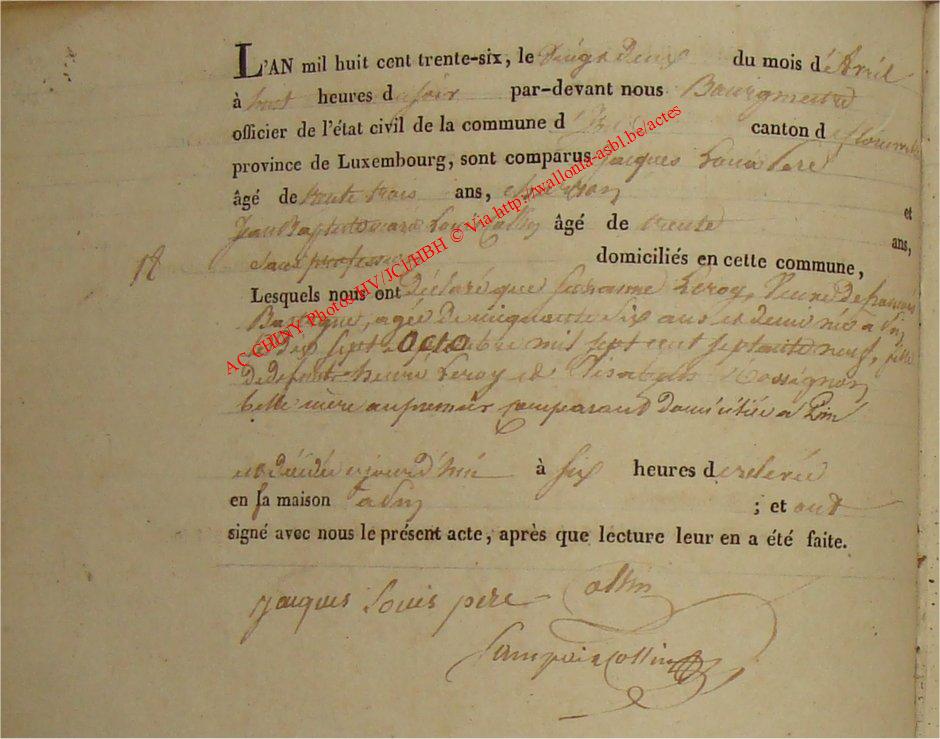 L'AN mil huit cent trente-six, le vingt deux du mois d'Avril
à huit heures du soir par-devant nous Bourgmestre
officier de l'état civil de la commune d canton de florenville
province de Luxembourg, sont comparus jacques Louis Pere
âgé de trente trois ans, et
Jean Baptiste Collin âgé de trente ans,
18
Sans profession domiciliés en cette commune,
Lesquels nous ont déclaré que Leroy, Veuve de françois
Bastogne, agée de cinquante six ans et demi née a Pin
le dix sept Octobre mil sept cent septante neuf, fille
de defunt henri Leroy et Rossignon
belle mère au premier comparant domiciliée a Pin
est décédée aujourd'hui à six heures de relevée
en sa maison a Pin ; et ont
signé avec nous le présent acte, après que lecture leur en a été faite.
jacques Louis pere Collin
Collin
AC CHINY Photos HV/JCI/HBH © Via http://wallonia-asbl.be/actes